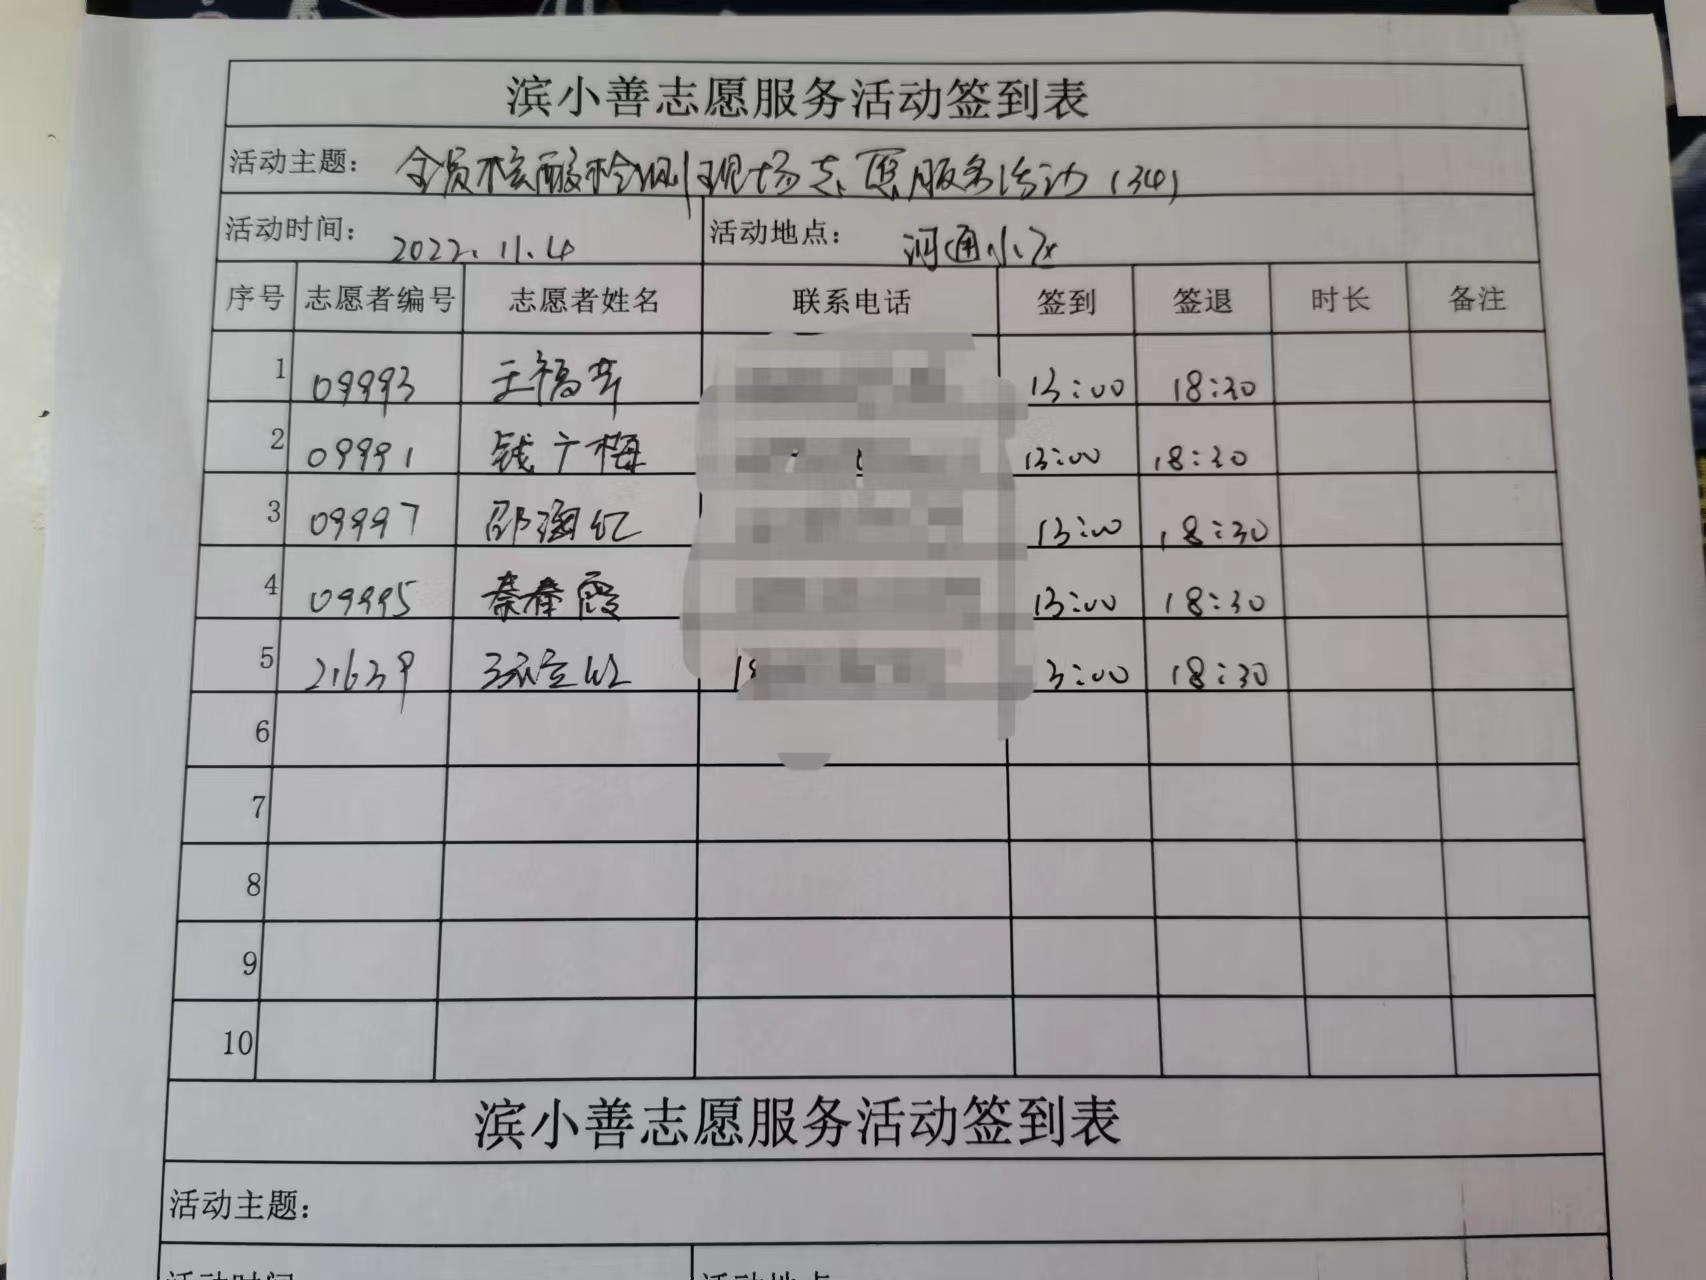 滨小善志愿服务活动签到表
活动主题： 全员核酸检测现场志愿服务活动(34)
活动时间： 2022.11.4 活动地点： 河通小区
序号 志愿者编号 志愿者姓名 联系电话 签到 签退 时长 备注
1 09993 王福芳 13:00 18:30
2 09991 钱广梅 13:00 18:30
3 09997 邵海红 13:00 18:30
4 09995 秦春霞 13:00 18:30
5 21639 3:00 18:30
6
7
8
9
10
滨小善志愿服务活动签到表
活动主题：
活动时间 活动地点